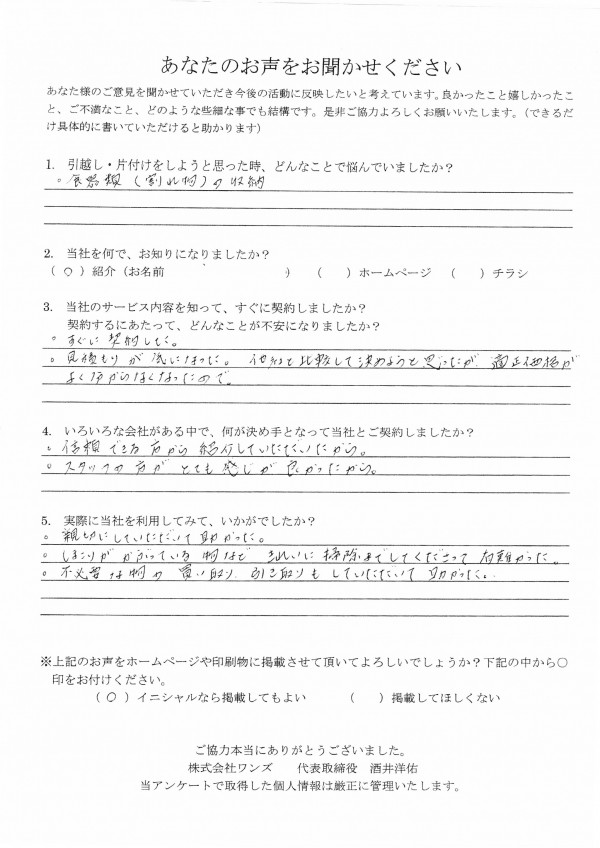 あなたのお声をお聞かせください
あなた様のご意見を聞かせていただき今後の活動に反映したいと考えています。良かったこと嬉しかったこ
と、ご不満なこと、どのような些細な事でも結構です。是非ご協力よろしくお願いいたします。（できるだ
け具体的に書いていただけると助かります）
1. 引越し・片付けをしようと思った時、どんなことで悩んでいましたか？
○ 食器類（割れ物）の収納
2. 当社を何で、お知りになりましたか？
（ ○ ）紹介（お名前 ） （ ）ホームページ （ ）チラシ
3. 当社のサービス内容を知って、すぐに契約しましたか？
契約するにあたって、どんなことが不安になりましたか？
○ すぐに契約した。
○ 見積もりが気になった。他社と比較して決めようと思ったが、適正価格が
よく分からなくなったので。
4. いろいろな会社がある中で、何が決め手となって当社とご契約しましたか？
○ 信頼できる方から紹介していただいたから。
○ スタッフの方がとても感じが良かったから。
5. 実際に当社を利用してみて、いかがでしたか？
○ 親切にしていただいて助かった。
○ ほこりがかぶっている物など きれいに掃除までしてくださって有難かった。
○ 不必要な物の買い取り、引き取りもしていただいて助かった。
※上記のお声をホームページや印刷物に掲載させて頂いてよろしいでしょうか？下記の中から○
印をお付けください。
（ ○ ）イニシャルなら掲載してもよい （ ）掲載してほしくない
ご協力本当にありがとうございました。
株式会社ワンズ 代表取締役 酒井洋佑
当アンケートで取得した個人情報は厳正に管理いたします。